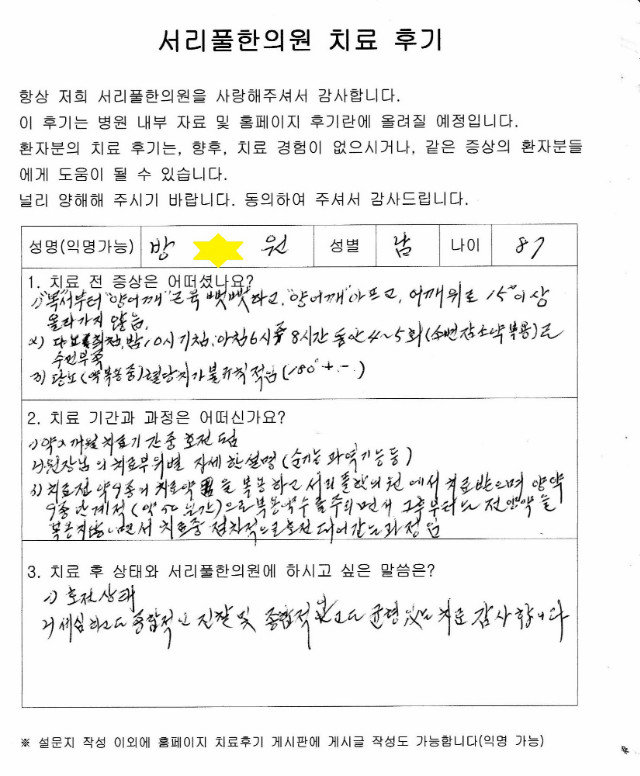 서리풀한의원 치료 후기
항상 저희 서리풀한의원을 사랑해주셔서 감사합니다.
이 후기는 병원 내부 자료 및 홈페이지 후기란에 올려질 예정입니다.
환자분의 치료 후기는, 향후, 치료 경험이 없으시거나, 같은 증상의 환자분들
에게 도움이 될 수 있습니다.
널리 양해해 주시기 바랍니다. 동의하여 주셔서 감사드립니다.
성명(익명가능) 방 원 성별 남 나이 87
1. 치료 전 증상은 어떠셨나요?
"양어깨" 근육 뻣뻣하고, "양어깨" 아프고, 어깨위로 15° 이상
올라가지 않음
밤 10시 기침, 아침 6시 8시간 동안 4~5회 (소변감소약 복용)로
수면부족
3) 당뇨 (약복용중) 혈당치가 불규칙적임 (180° + -)
2. 치료 기간과 과정은 어떠신가요?
치료기간중 호전됨
2) 원장님의 치료부위별 자세한 설명 (순기능과 역기능 등)
3) 치료전 약 9종의 치료약을 복용하고 서리풀한의원에서 치료받으며 양약
9종 단계적 으로 복용약수를 줄이면서 그후부터는 전양약을
복용치않으면서 치료중 점차적으로 호전되어가는 과정임
3. 치료 후 상태와 서리풀한의원에 하시고 싶은 말씀은?
1) 호전상태
2) 세심하고도 종합적인 진찰 및 종합적 균형있는 치료 감사합니다
※ 설문지 작성 이외에 홈페이지 치료후기 게시판에 게시글 작성도 가능합니다(익명 가능)